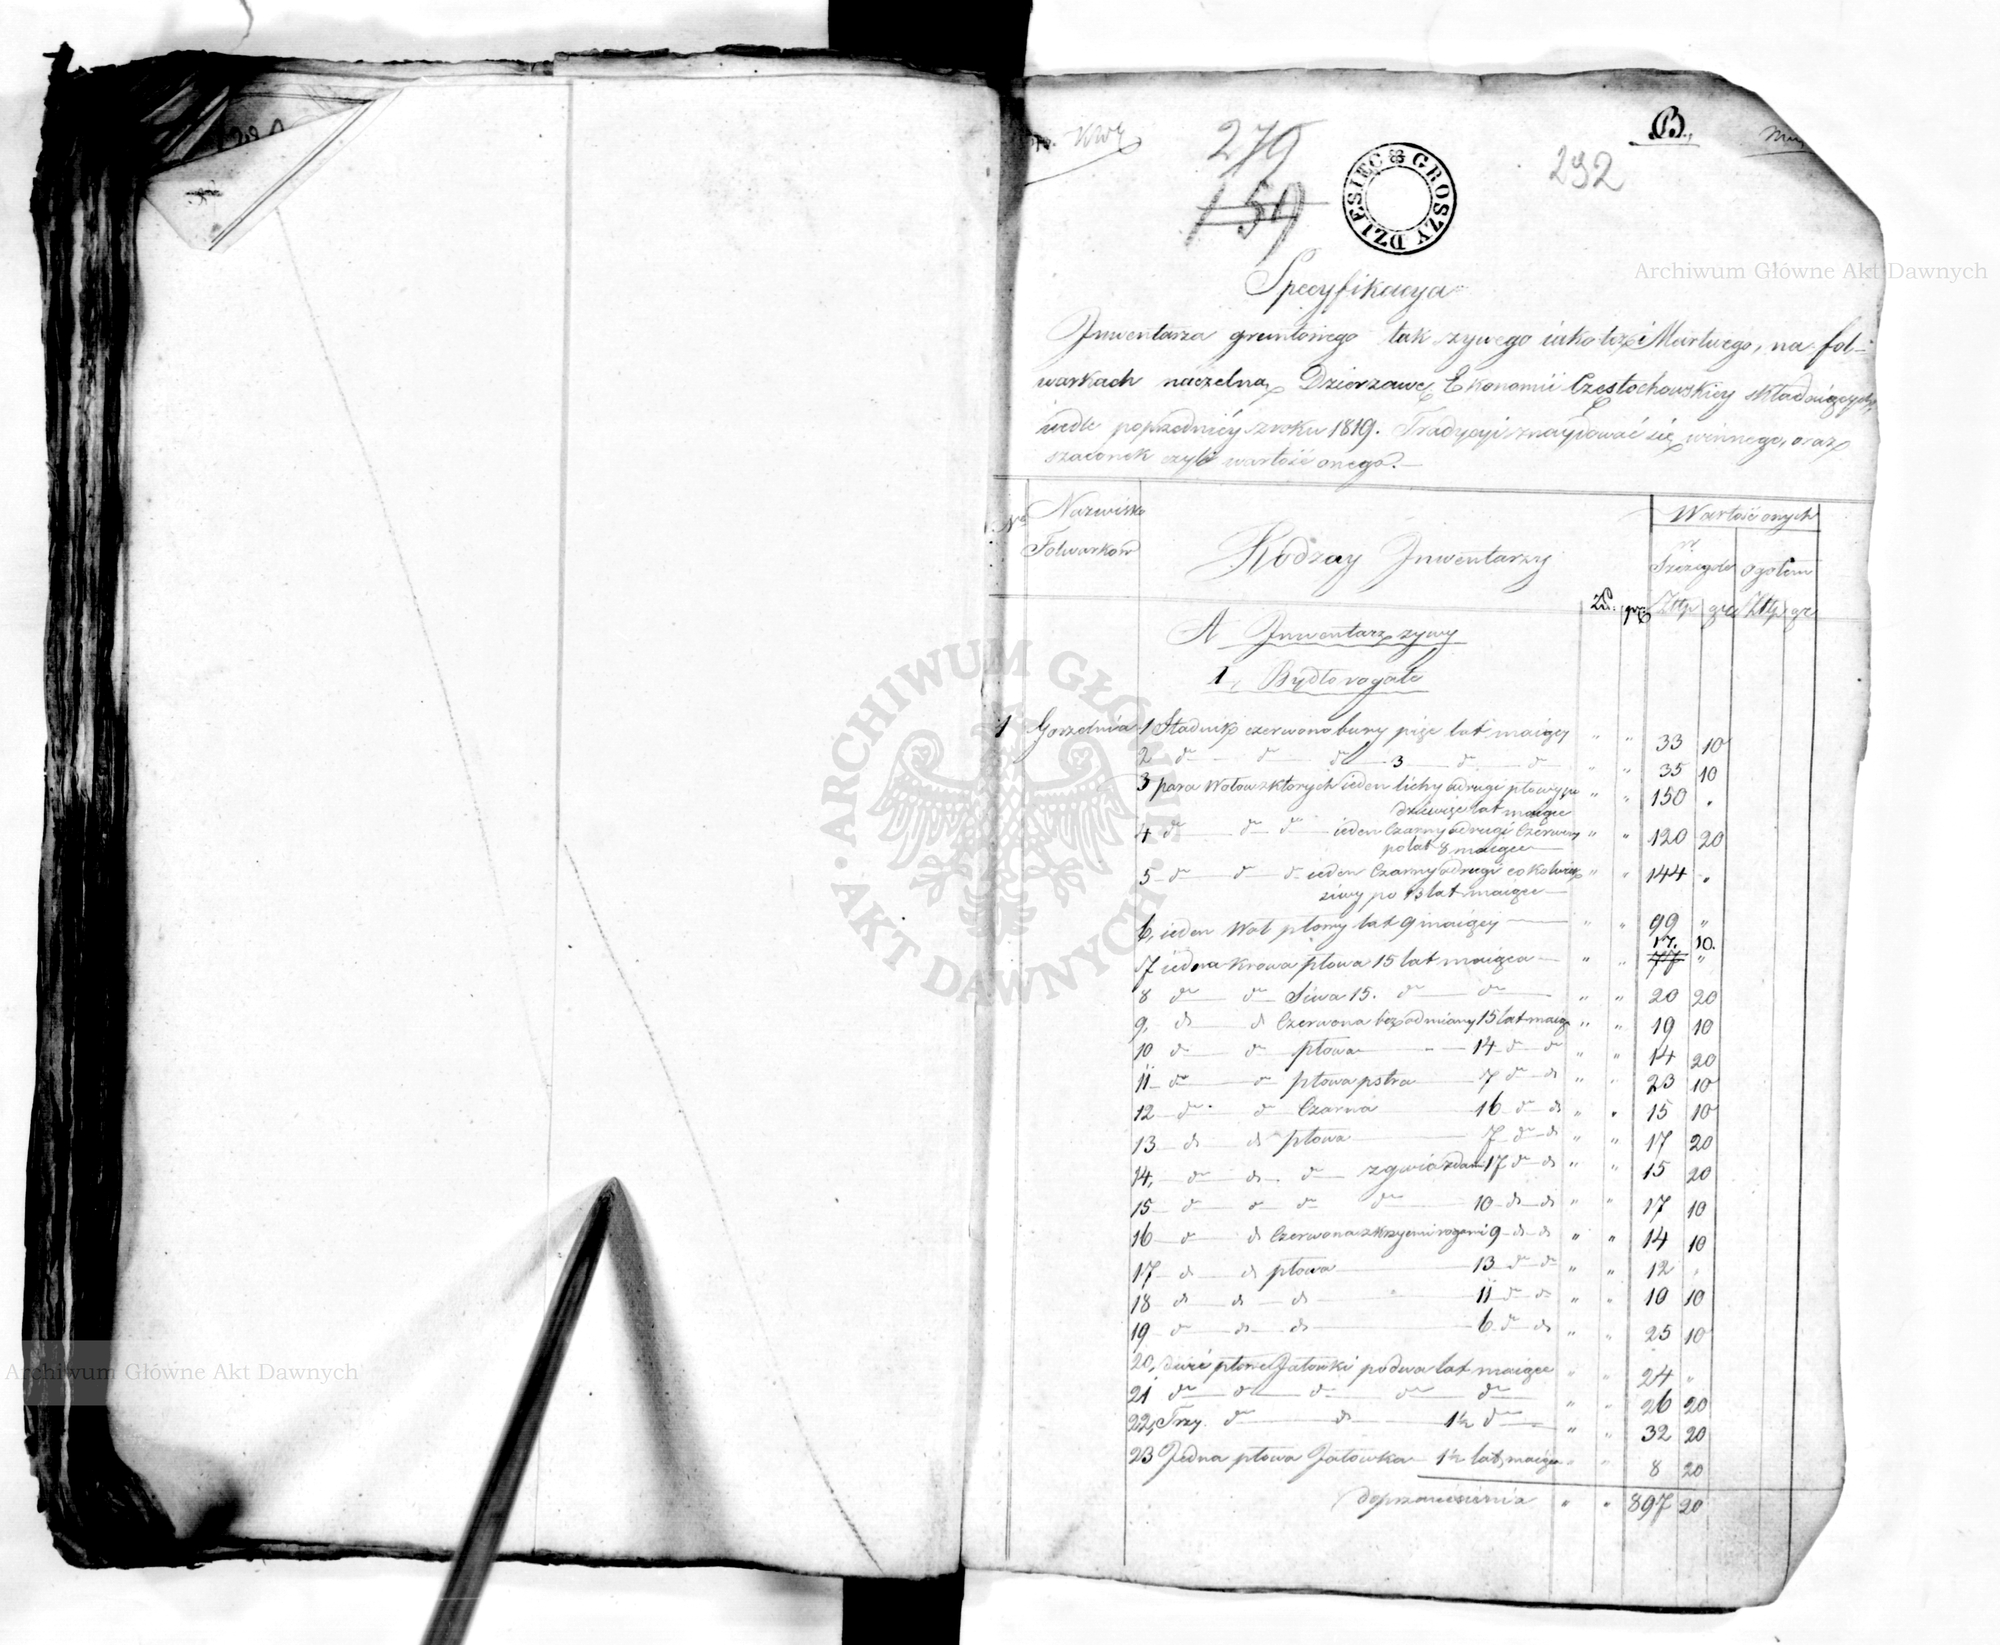 B.
279
292
159
DZIESIĘĆ GROSZY
Specyfikacya
Inwentarza gruntowego tak zywego iako też i Martwego, na fol-
warkach naczelną Dzierzawę Ekonomii Częstochowskiey składaiących
wedle poprzedniéy z roku 1819. Tradycyi znaydować się winnego, oraz
szacunek czyli wartość onego.
Nro Nazwisko Folwarków
Rodzay Inwentarzy
Wartość onych
w Szczególe ogołem
Zł. gr. Złp gr Złp gr
A Inwentarz zywy
1, Bydło rogate
1 Gorzelnia 1 Stadnik czerwono bury pięć lat maiący " " 33 10
2 do do do 3 do do " " 35 10
3 para Wołow z ktorych ieden lichy a drugi płowy po " " 150 "
dziewięć lat maiące
4 do do do ieden Czarny a drugi Czerwony " " 120 20
po lat 8 maiące
5 do do do ieden Czarny a drugi cokolwiek " " 144 "
siwy po 13 lat maiące
6, ieden Woł płowy lat 9 maiący " " 99 "
17. 10.
7 iedna Krowa płowa 15 lat maiąca " " 77 "
8 do do Siwa 15. do do " " 20 20
9, do do Czerwona bez odmiany 15 lat maiąca " " 19 10
10 do do płowa 14 do do " " 14 20
11 do do płowa pstra 7 do do " " 23 10
12 do do Czarna 16 do do " " 15 10
13 do do płowa 7 do do " " 17 20
14, do do do z gwiazdą 17 do do " " 15 20
15 do do do do 10 do do " " 17 10
16 do do Czerwona z krzyemi rogami 9 do do " " 14 10
17 do do płowa 13 do do " " 12 "
18 do do do 11 do do " " 10 10
19 do do do 6 do do " " 25 10
20, dwie płowe Jałowki po dwa lat maiące " " 24 "
21 do do do do do " " 26 20
22, Trzy do do 1½ do " " 32 20
23 Jedna płowa Jałowka 1½ lat maiąca " " 8 20
do przeniesienia " " 897 20
Archiwum Główne Akt Dawnych
ARCHIWUM GŁÓWNE AKT DAWNYCH
Archiwum Główne Akt Dawnych